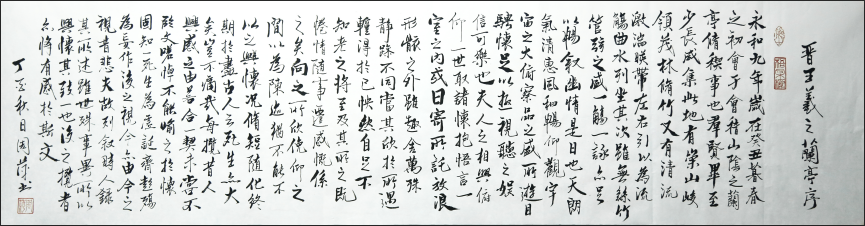 晋王羲之蘭亭序
永和九年歲在癸丑暮春
之初會于會稽山陰之蘭
亭脩稧事也羣賢畢至
少長咸集此地有崇山峻
領茂林脩竹又有清流
激湍暎帶左右引以為流
觴曲水列坐其次雖無絲竹
管弦之盛一觴一詠亦足
以暢叙幽情是日也天朗
氣清惠風和暢仰觀宇
宙之大俯察品之盛所遊目
騁懷足以極視聽之娛
信可樂也夫人之相與俯
仰一世取諸懷抱悟言一
室之內或因寄所託放浪
形骸之外雖趣舍萬殊
静躁不同當其欣於所遇
蹔得於己怏然自足不
知老之將至及其所之既
惓情隨事遷感慨係
之矣向之所欣俛仰之
間以為陳迹猶不能不
以之興懷況脩短隨化終
期於盡古人云死生亦大
矣豈不痛哉每攬昔人
興感之由若合一契未嘗不
臨文嗟悼不能喻之於懷
固知死生為虛誕齊彭殤
為妄作後之視今亦由今之
視昔悲夫故列叙時人錄
其所述雖世殊事異所以
興懷其致一也後之攬者
亦將有感於斯文
丁亥秋日周榮書